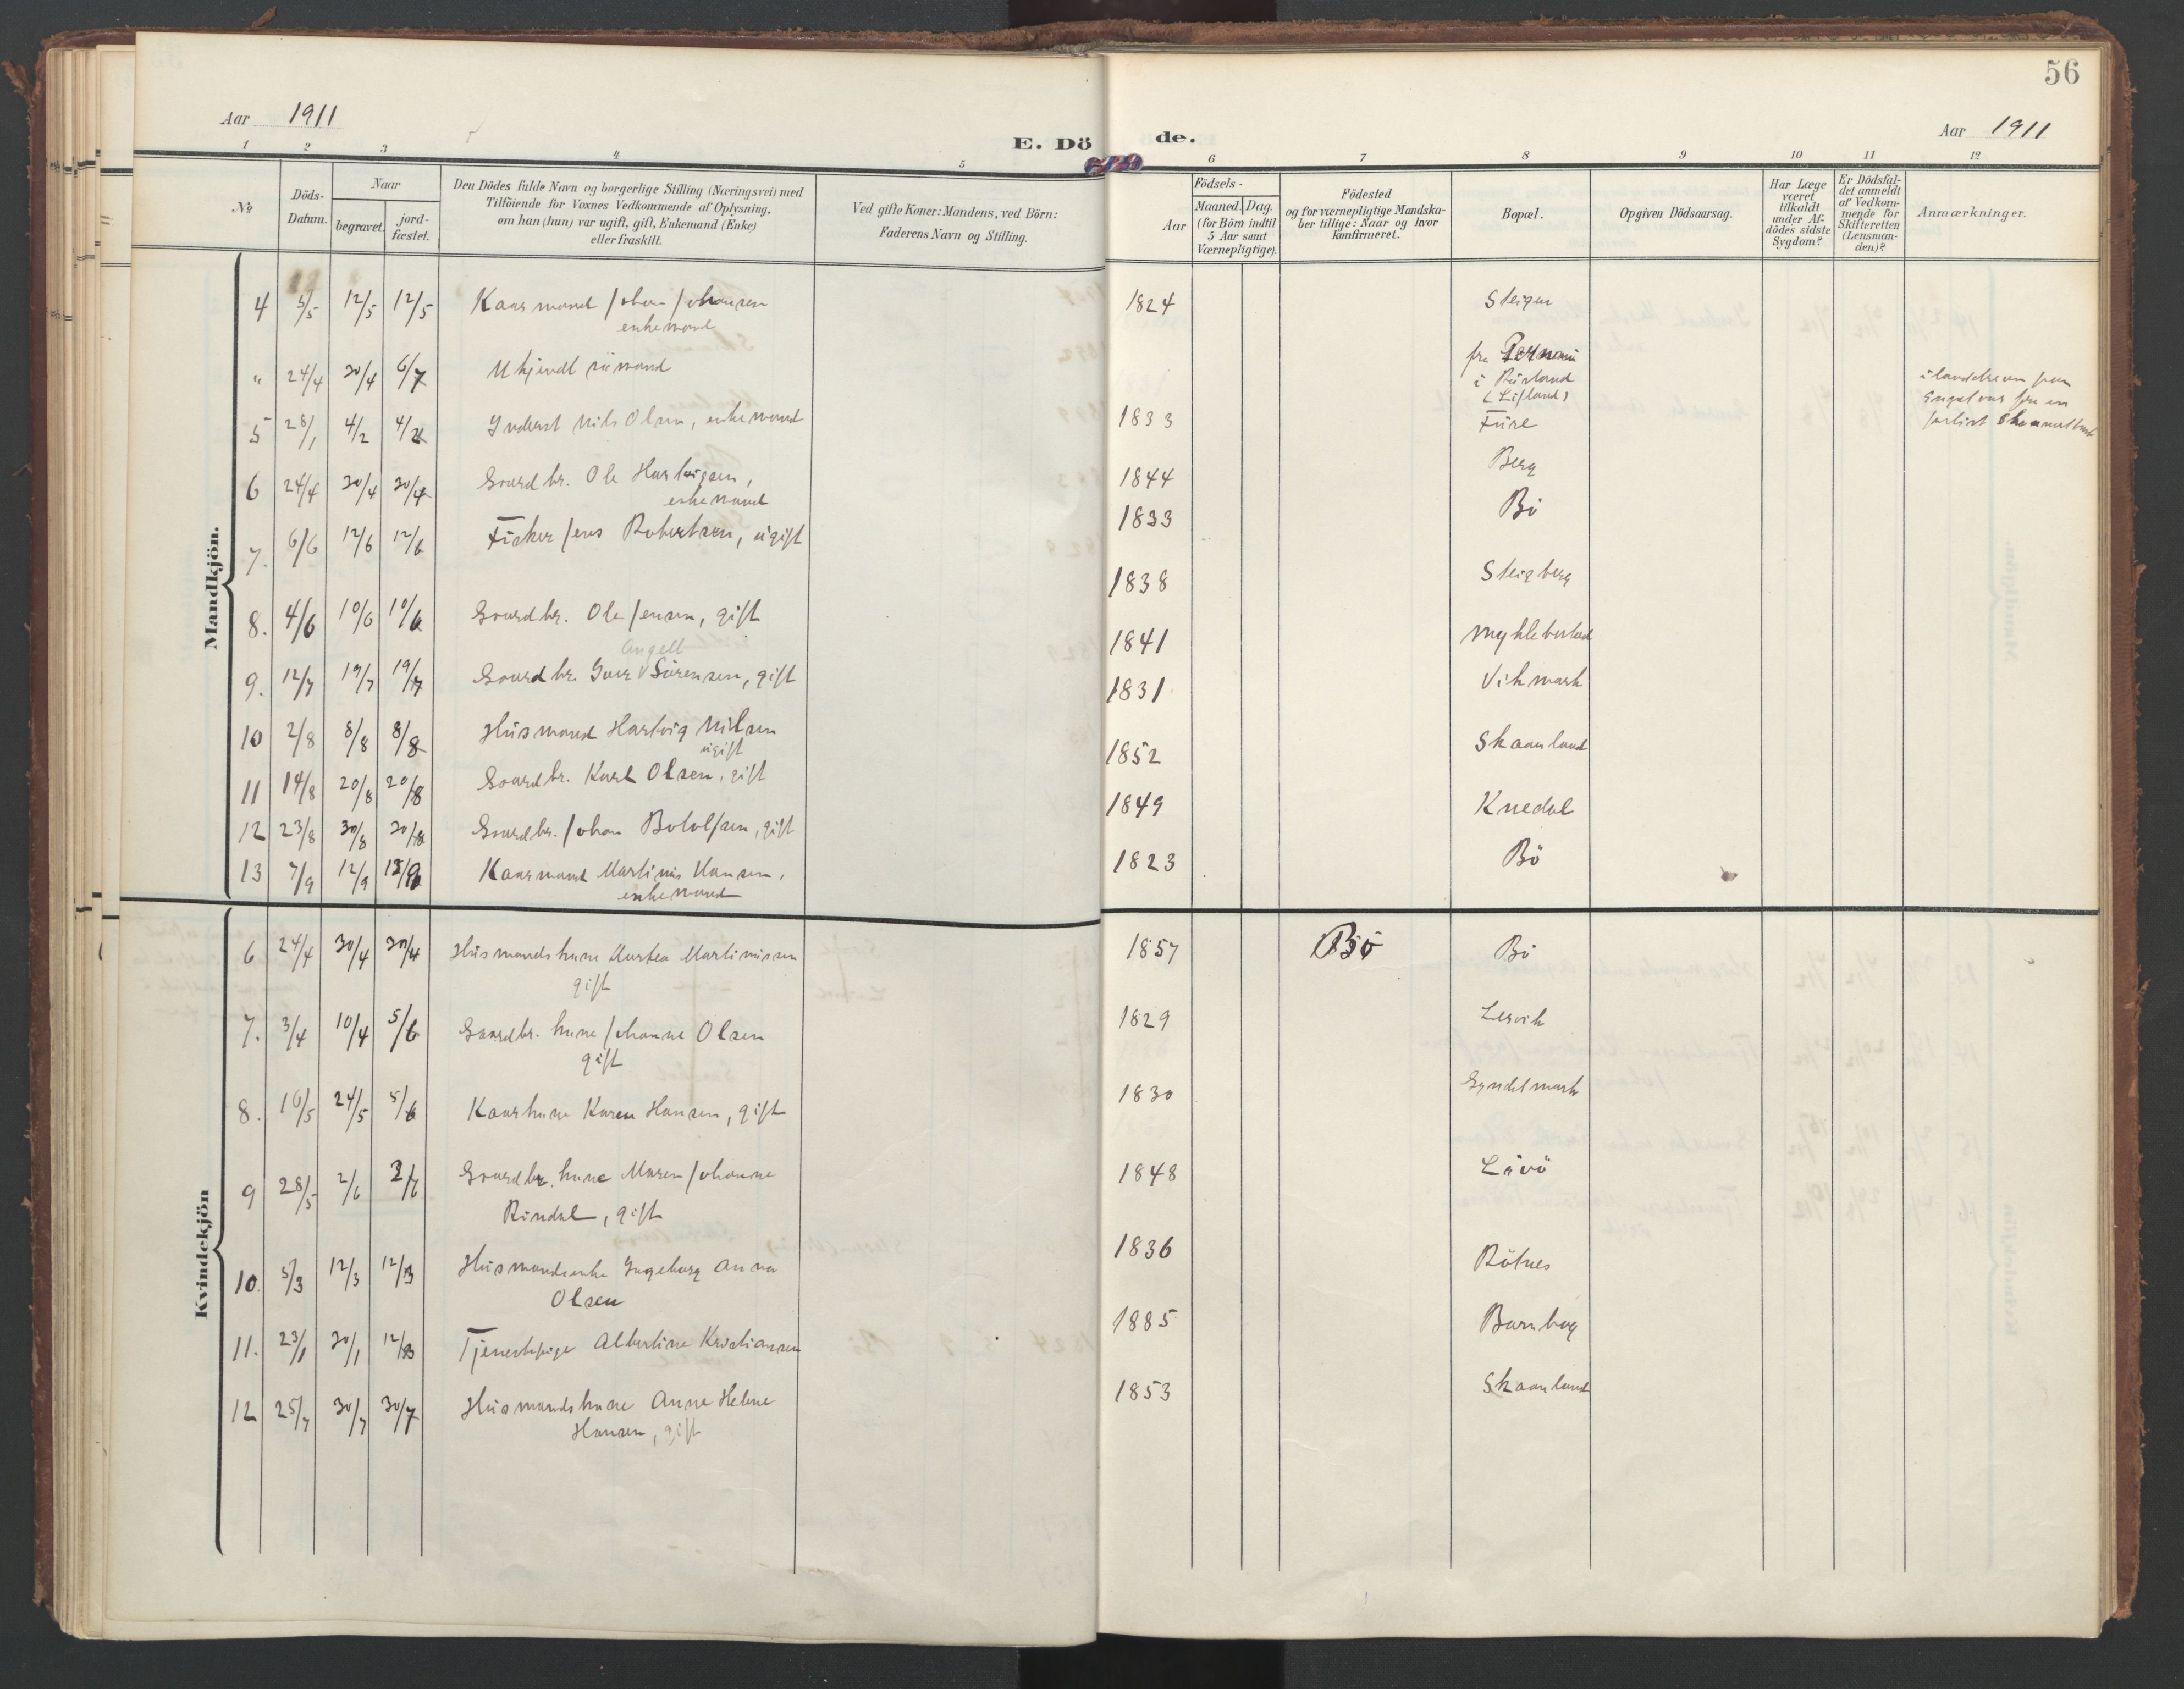 56
Aar 1911
E. Dö de.
Aar 1911
1 2 3 4 5 6 7 8 9 10 11 12
№
Döds-
Datum.
Naar
begravet.
jord-
fæstet.
Den Dödes fulde Navn og borgerlige Stilling (Næringsvei) med
Tilföiende for Voxnes Vedkommende af Oplysning,
om han (hun) var ugift, gift, Enkemand (Enke)
eller fraskilt.
Ved gifte Koner: Mandens, ved Börn:
Faderens Navn og Stilling.
Födsels-
Aar
Maaned. Dag.
(for Börn indtil
5 Aar samt
Værnepligtige).
Födested
og for værnepligtige Mandska-
ber tillige: Naar og hvor
konfirmeret.
Bopæl.
Opgiven Dödsaarsag.
Har Læge
været
tilkaldt
under Af-
dödes sidste
Sygdom?
Er Dödsfal-
det anmeldt
af Vedkom-
mende for
Skifteretten
(Lensman-
den)?
Anmærkninger.
Mandkjön.
4 5/5 12/5 12/5 Kaarmand Johan Johansen 1824 Steigen
enkemand
" 24/4 30/4 6/7 Ukjendt sömand fra Pernau
i Rusland
(Lifland)
i landdreven paa
Engeløen fra en
forlist
5 28/1 4/2 4/2 Inderst Nils Olsen, enkemand 1833 Füre
6 24/4 30/4 30/4 Gaardbr. Ole Hartvigsen, 1844 Berg
enkemand
7. 6/6 12/6 12/6 Fisker Jens Robertsen, ugift 1833 Bö
8. 4/6 10/6 10/6 Gaardbr. Ole Jensen, gift 1838 Steigberg
Angell
9. 12/7 19/7 19/7 Gaardbr. Iver Sörensen, gift 1841 Myklebostad
10 2/8 8/8 8/8 Husmand Hartvig Nilsen 1831 Vikmark
ugift
11 14/8 20/8 20/8 Gaardbr. Karl Olsen, gift 1852 Skaanland
12 23/8 30/8 30/8 Gaardbr. Johan Bololfsen, gift 1849 Knedal
13 7/9 12/9 12/9 Kaarmand Martinus Hansen, 1823 Bö
enkemand
Kvindekjön
6 24/4 30/4 30/4 Husmandskone Martea Martinussen 1857 Bö Bö
gift
7. 3/4 10/4 5/6 Gaardbr. kone Johanne Olsen 1829 Lesvik
gift
8. 16/5 24/5 5/6 Kaarkone Karen Hansen, gift 1830 Gyndelmark
9 28/5 2/6 2/6 Gaardbr. kone Maren Johanne 1848 Lövö
Rindal, gift
10. 5/3 12/3 12/3 Husmandsenke Ingeborg Anna 1836 Rötnes
Olsen
11. 23/1 30/1 12/3 Tjenestepige Albertine Kristiansen 1885 Barnbog
12 25/7 30/7 30/7 Husmandskone Anne Helene 1853 Skaanland
Hansen, gift